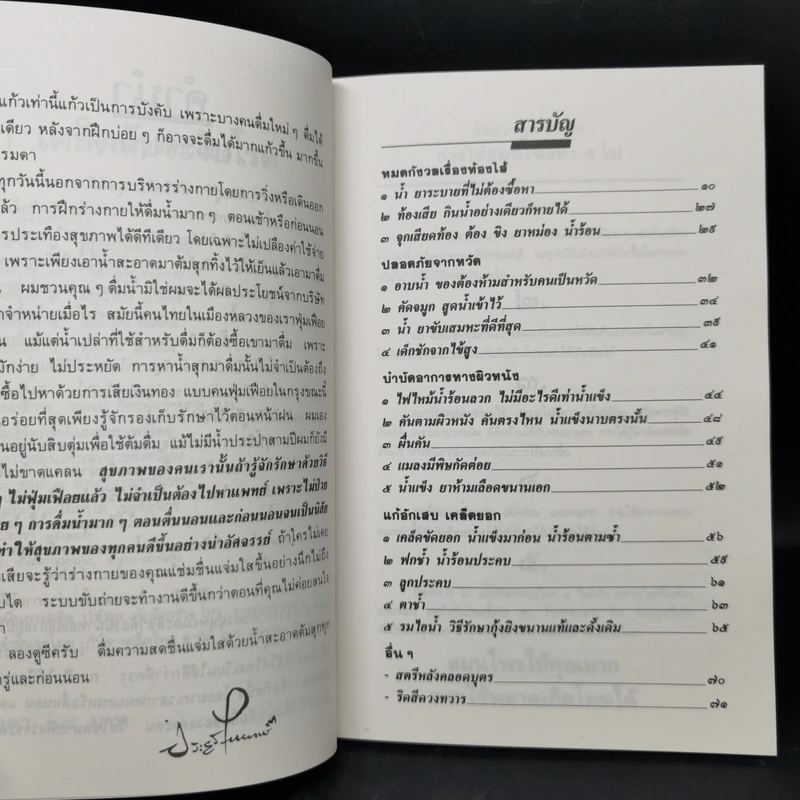 แก้วเท่านี้แก้วเป็นการบังคับ เพราะบางคนดื่มใหม่ ๆ ดื่มได้
เดียว หลังจากฝึกบ่อย ๆ ก็อาจจะดื่มได้มากแก้วขึ้น มากขึ้น
รมดา
ทุกวันนี้นอกจากการบริหารร่างกายโดยการวิ่งหรือเดินออก
ล้ว การฝึกร่างกายให้ดื่มน้ำมาก ๆ ตอนเช้าหรือก่อนนอน
รประเทืองสุขภาพได้ดีทีเดียว โดยเฉพาะไม่เปลืองค่าใช้จ่าย
เพราะเพียงเอาน้ำสะอาดมาต้มสุกทิ้งไว้ให้เย็นแล้วเอามาดื่ม
ผมชวนคุณ ๆ ดื่มน้ำมิใช่ผมจะได้ผลประโยชน์จากบริษัท
จำหน่ายเมื่อไร สมัยนี้คนไทยในเมืองหลวงของเราฟุ่มเฟือย
น แม้แต่น้ำเปล่าที่ใช้สำหรับดื่มก็ต้องซื้อเขามาดื่ม เพราะ
มักง่าย ไม่ประหยัด การหาน้ำสุกมาดื่มนั้นไม่จำเป็นต้องถึง
ซื้อไปหาด้วยการเสียเงินทอง แบบคนฟุ่มเฟือยในกรุงขณะนี้
อร่อยที่สุดเพียงรู้จักรองเก็บรักษาไว้ตอนหน้าฝน ผมเอง
นอยู่นับสิบตุ่มเพื่อใช้ต้มดื่ม แม้ไม่มีน้ำประปาสามปีผมก็ยังมี
ไม่ขาดแคลน สุขภาพของคนเรานั้นถ้ารู้จักรักษาด้วยวิธี
ๆ ไม่ฟุ่มเฟือยแล้ว ไม่จำเป็นต้องไปหาแพทย์ เพราะไม่ป่วย
ย ๆ การดื่มน้ำมาก ๆ ตอนตื่นนอนและก่อนนอนจนเป็นนิสัย
ทำให้สุขภาพของทุกคนดีขึ้นอย่างน่าอัศจรรย์ ถ้าใครไม่เคย
เสียจะรู้ว่าร่างกายของคุณแช่มชื่นแจ่มใสขึ้นอย่างนึกไม่ถึง
บไต ระบบขับถ่ายจะทำงานดีขึ้นกว่าตอนที่คุณไม่ค่อยสนใจ
ลองดูซีครับ ดื่มความสดชื่นแจ่มใสด้วยน้ำสะอาดต้มสุกทุก
รู่และก่อนนอน
สารบัญ
หมดกังวลเรื่องท้องไส้
๑ น้ำ ยาระบายที่ไม่ต้องซื้อหา ๑๐
๒ ท้องเสีย กินน้ำอย่างเดียวก็หายได้ ๒๗
๓ จุกเสียดท้อง ต้อง ขิง ยาหม่อง น้ำร้อน ๒๙
ปลอดภัยจากหวัด
๑ อาบน้ำ ของต้องห้ามสำหรับคนเป็นหวัด ๓๒
๒ คัดจมูก สูดน้ำเข้าไว้ ๓๔
๓ น้ำ ยาขับเสมหะที่ดีที่สุด ๓๙
๔ เด็กชักจากไข้สูง ๔๑
บำบัดอาการทางผิวหนัง
๑ ไฟไหม้น้ำร้อนลวก ไม่มีอะไรดีเท่าน้ำแข็ง ๔๔
๒ คันตามผิวหนัง คันตรงไหน น้ำแข็งนาบตรงนั้น ๔๘
๓ ผื่นคัน ๔๙
๔ แมลงมีพิษกัดต่อย ๕๑
๕ น้ำแข็ง ยาห้ามเลือดขนานเอก ๕๒
แก้อักเสบ เคล็ดยอก
๑ เคล็ดขัดยอก น้ำแข็งมาก่อน น้ำร้อนตามซ้ำ ๕๖
๒ ฟกช้ำ น้ำร้อนประคบ ๕๙
๓ ลูกประคบ ๖๑
๔ ตาช้ำ ๖๓
๕ รมไอน้ำ วิธีรักษากุ้งยิงขนานแท้และดั้งเดิม ๖๕
อื่น ๆ
- สตรีหลังคลอดบุตร ๗๐
- ริดสีดวงทวาร ๗๑